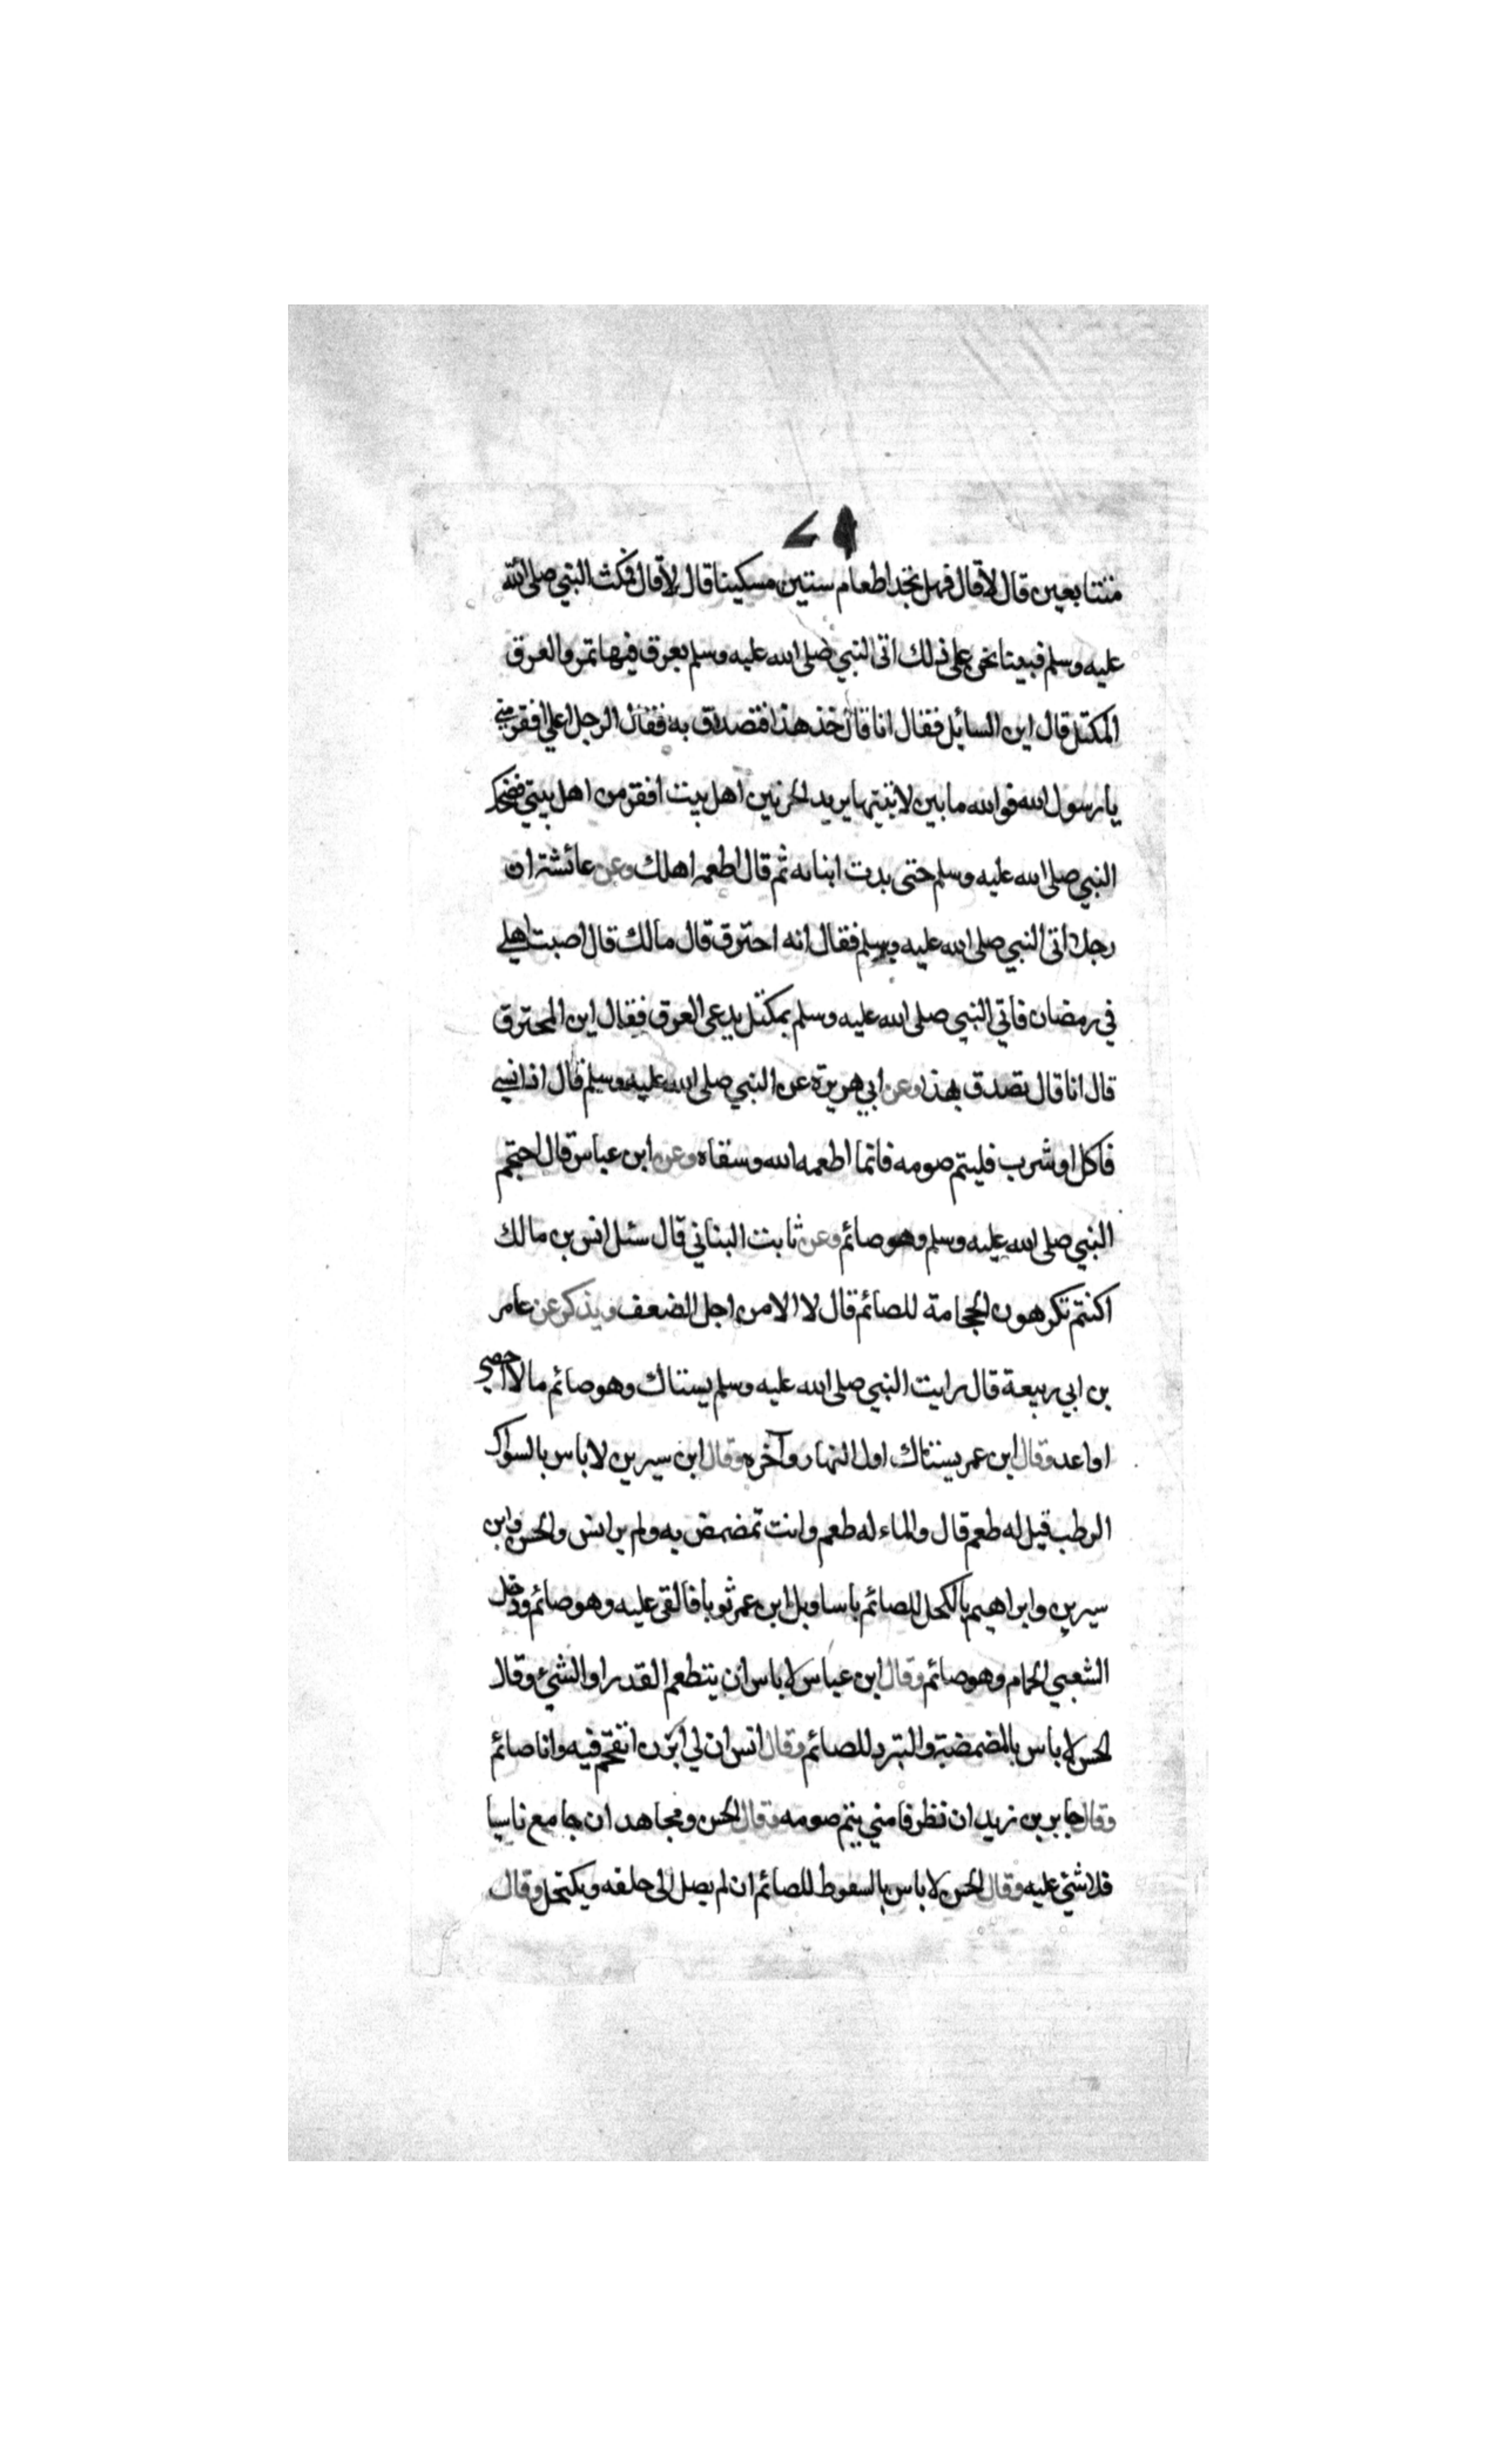 متتابعين قال لا قال فهل تجد اطعام ستين مسكينا قال لا قال فمكث النبي صلى الله
عليه وسلم فبينا نحن على ذلك اتى النبي صلى الله عليه وسلم بعرق فيها تمر والعرق
المكتل قال اين السايل فقال انا قال خذ هذا فتصدق به فقال الرجل اعلى افقر مني
يا رسول الله فوالله ما بين لابتيها يريد الحرتين اهل بيت افقر من اهل بيتي فضحك
النبي صلى الله عليه وسلم حتى بدت انيابه ثم قال اطعمه اهلك وعن عائشة ان
رجلا اتى النبي صلى الله عليه وسلم فقال انه احترق قال مالك قال اصبت اهلي
في رمضان فاتي النبي صلى الله عليه وسلم بمكتل يدعى العرق فقال اين المحترق
قال انا قال تصدق بهذا وعن ابي هريرة عن النبي صلى الله عليه وسلم قال اذا نسي
فاكل او شرب فليتم صومه فانما اطعمه الله وسقاه وعن ابن عباس قال احتجم
النبي صلى الله عليه وسلم وهو صائم وعن ثابت البناني قال سئل انس بن مالك
اكنتم تكرهون الحجامة للصائم قال لا الا من اجل الضعف ويذكر عن عامر
بن ابي ربيعة قال رايت النبي صلى الله عليه وسلم يستاك وهو صائم ما لا احصي
او اعد وقال ابن عمر يستاك اول النهار وآخره وقال ابن سيرين لا باس بالسواك
الرطب قيل له طعم قال والماء له طعم وانت تمضمض به ولم ير انس والحسن وابن
سيرين وابراهيم بالكحل للصائم باسا وبل ابن عمر ثوبا فالقى عليه وهو صائم ودخل
الشعبي الحمام وهو صائم وقال ابن عباس لا باس ان يتطعم القدر او الشئ وقال
الحسن لا باس بالمضمضة والتبرد للصائم وقال انس ان لي ابزن اتقحم فيه وانا صائم
وقال جابر بن زيد ان نظر فامنى يتم صومه وقال الحسن ومجاهد ان جامع ناسيا
فلا شئ عليه وقال الحسن لا باس بالسعوط للصائم ان لم يصل الى حلقه ويكتحل وقال